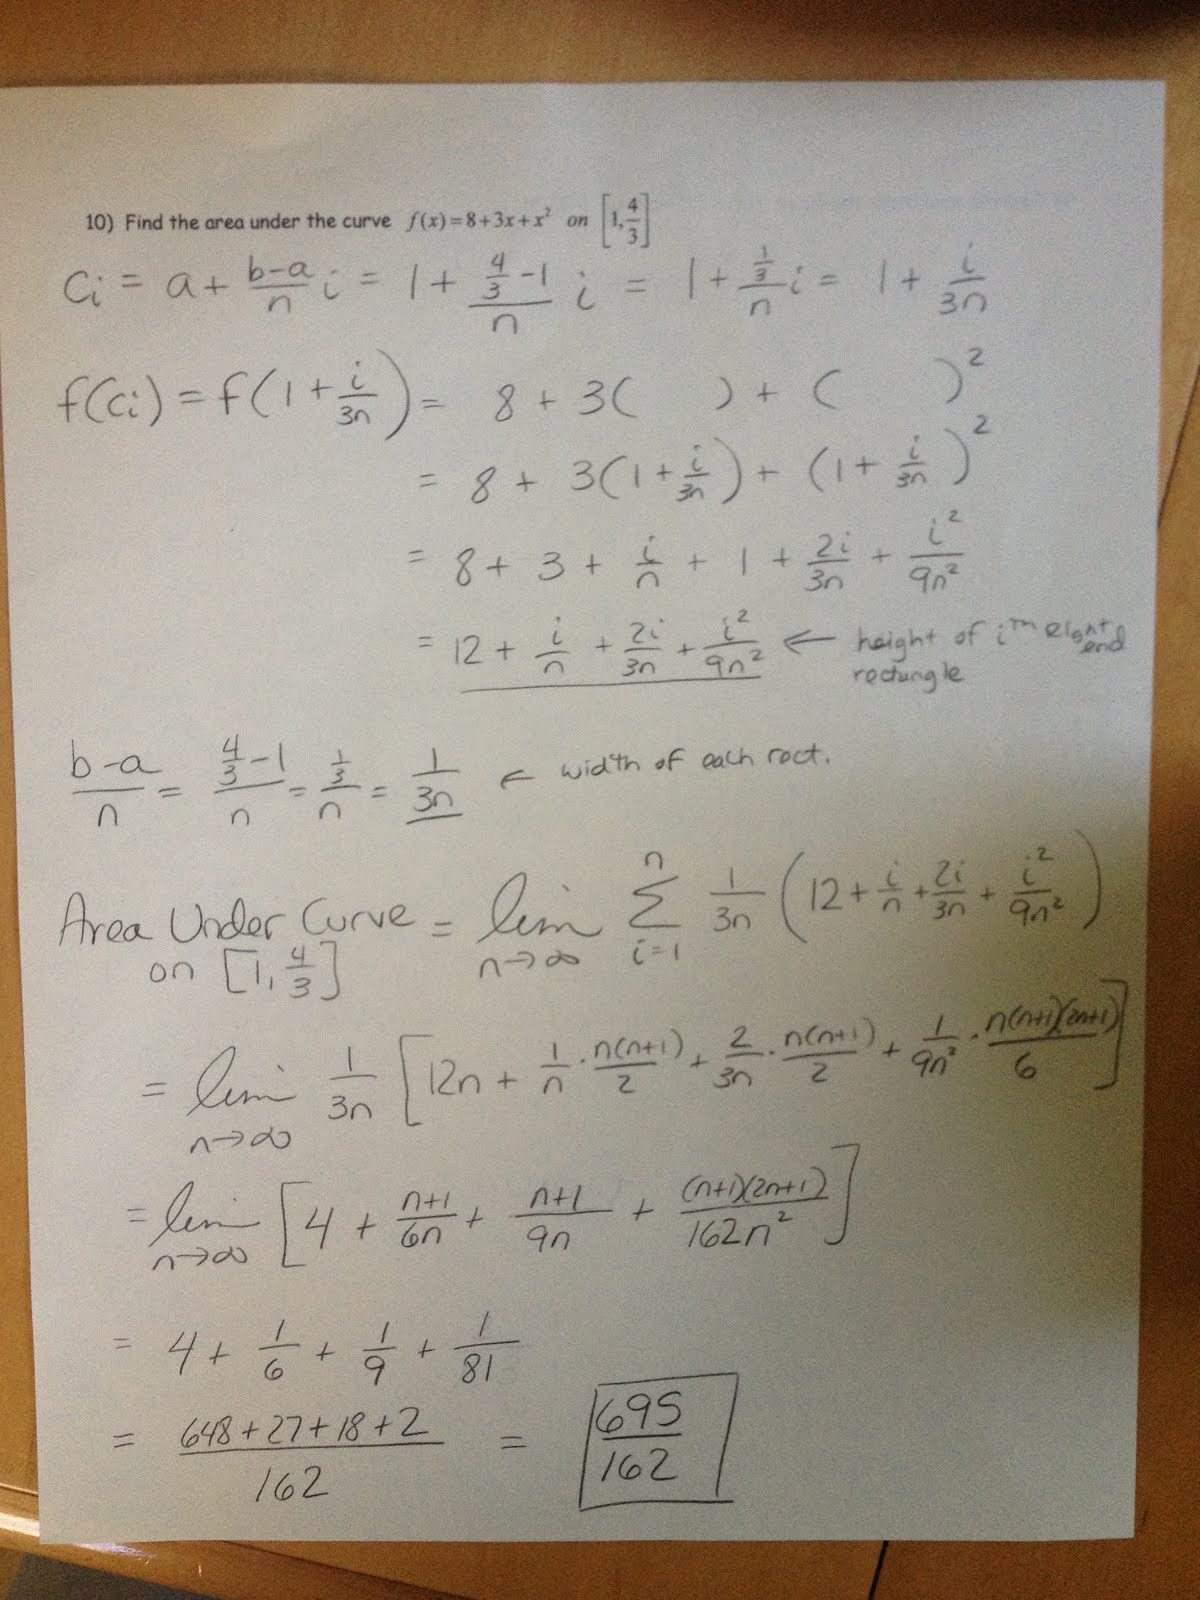 10) Find the area under the curve f(x)=8+3x+x² on [1, 4/3]
Ci = a + (b-a)/n i = 1 + (4/3 - 1)/n i = 1 + (1/3)/n i = 1 + i/3n
f(Ci) = f(1 + i/3n) = 8 + 3(   ) + (   )²
= 8 + 3(1 + i/3n) + (1 + i/3n)²
= 8 + 3 + i/n + 1 + 2i/3n + i²/9n²
= 12 + i/n + 2i/3n + i²/9n² ← height of iᵗʰ right end
rectangle
(b-a)/n = (4/3 - 1)/n = (1/3)/n = 1/3n ← width of each rect.
Area Under Curve = lim n→∞ Σ i=1 n 1/3n (12 + i/n + 2i/3n + i²/9n²)
on [1, 4/3]
= lim n→∞ 1/3n [12n + 1/n · n(n+1)/2 + 2/3n · n(n+1)/2 + 1/9n² · n(n+1)(2n+1)/6]
= lim n→∞ [4 + (n+1)/6n + (n+1)/9n + (n+1)(2n+1)/162n²]
= 4 + 1/6 + 1/9 + 1/81
= (648+27+18+2)/162 = 695/162